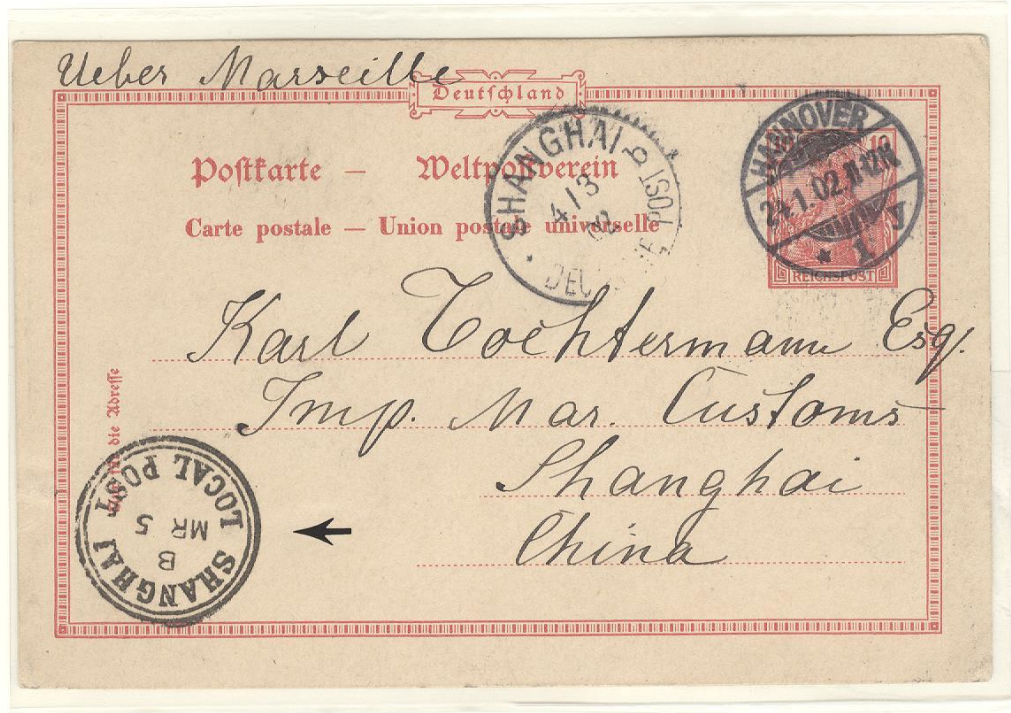 Ueber Marseille
Deutschland
Postkarte – Weltpostverein
Carte postale – Union postale universelle
SHANGHAI
4/3
02
HANNOVER
24.1.02.11-12V.
* 1 J
10
REICHSPOST
Karl Tochtermann Esq.
Imp. Mar. Customs
Shanghai
China
die Adresse
SHANGHAI
LOCAL POST
B
MR 5